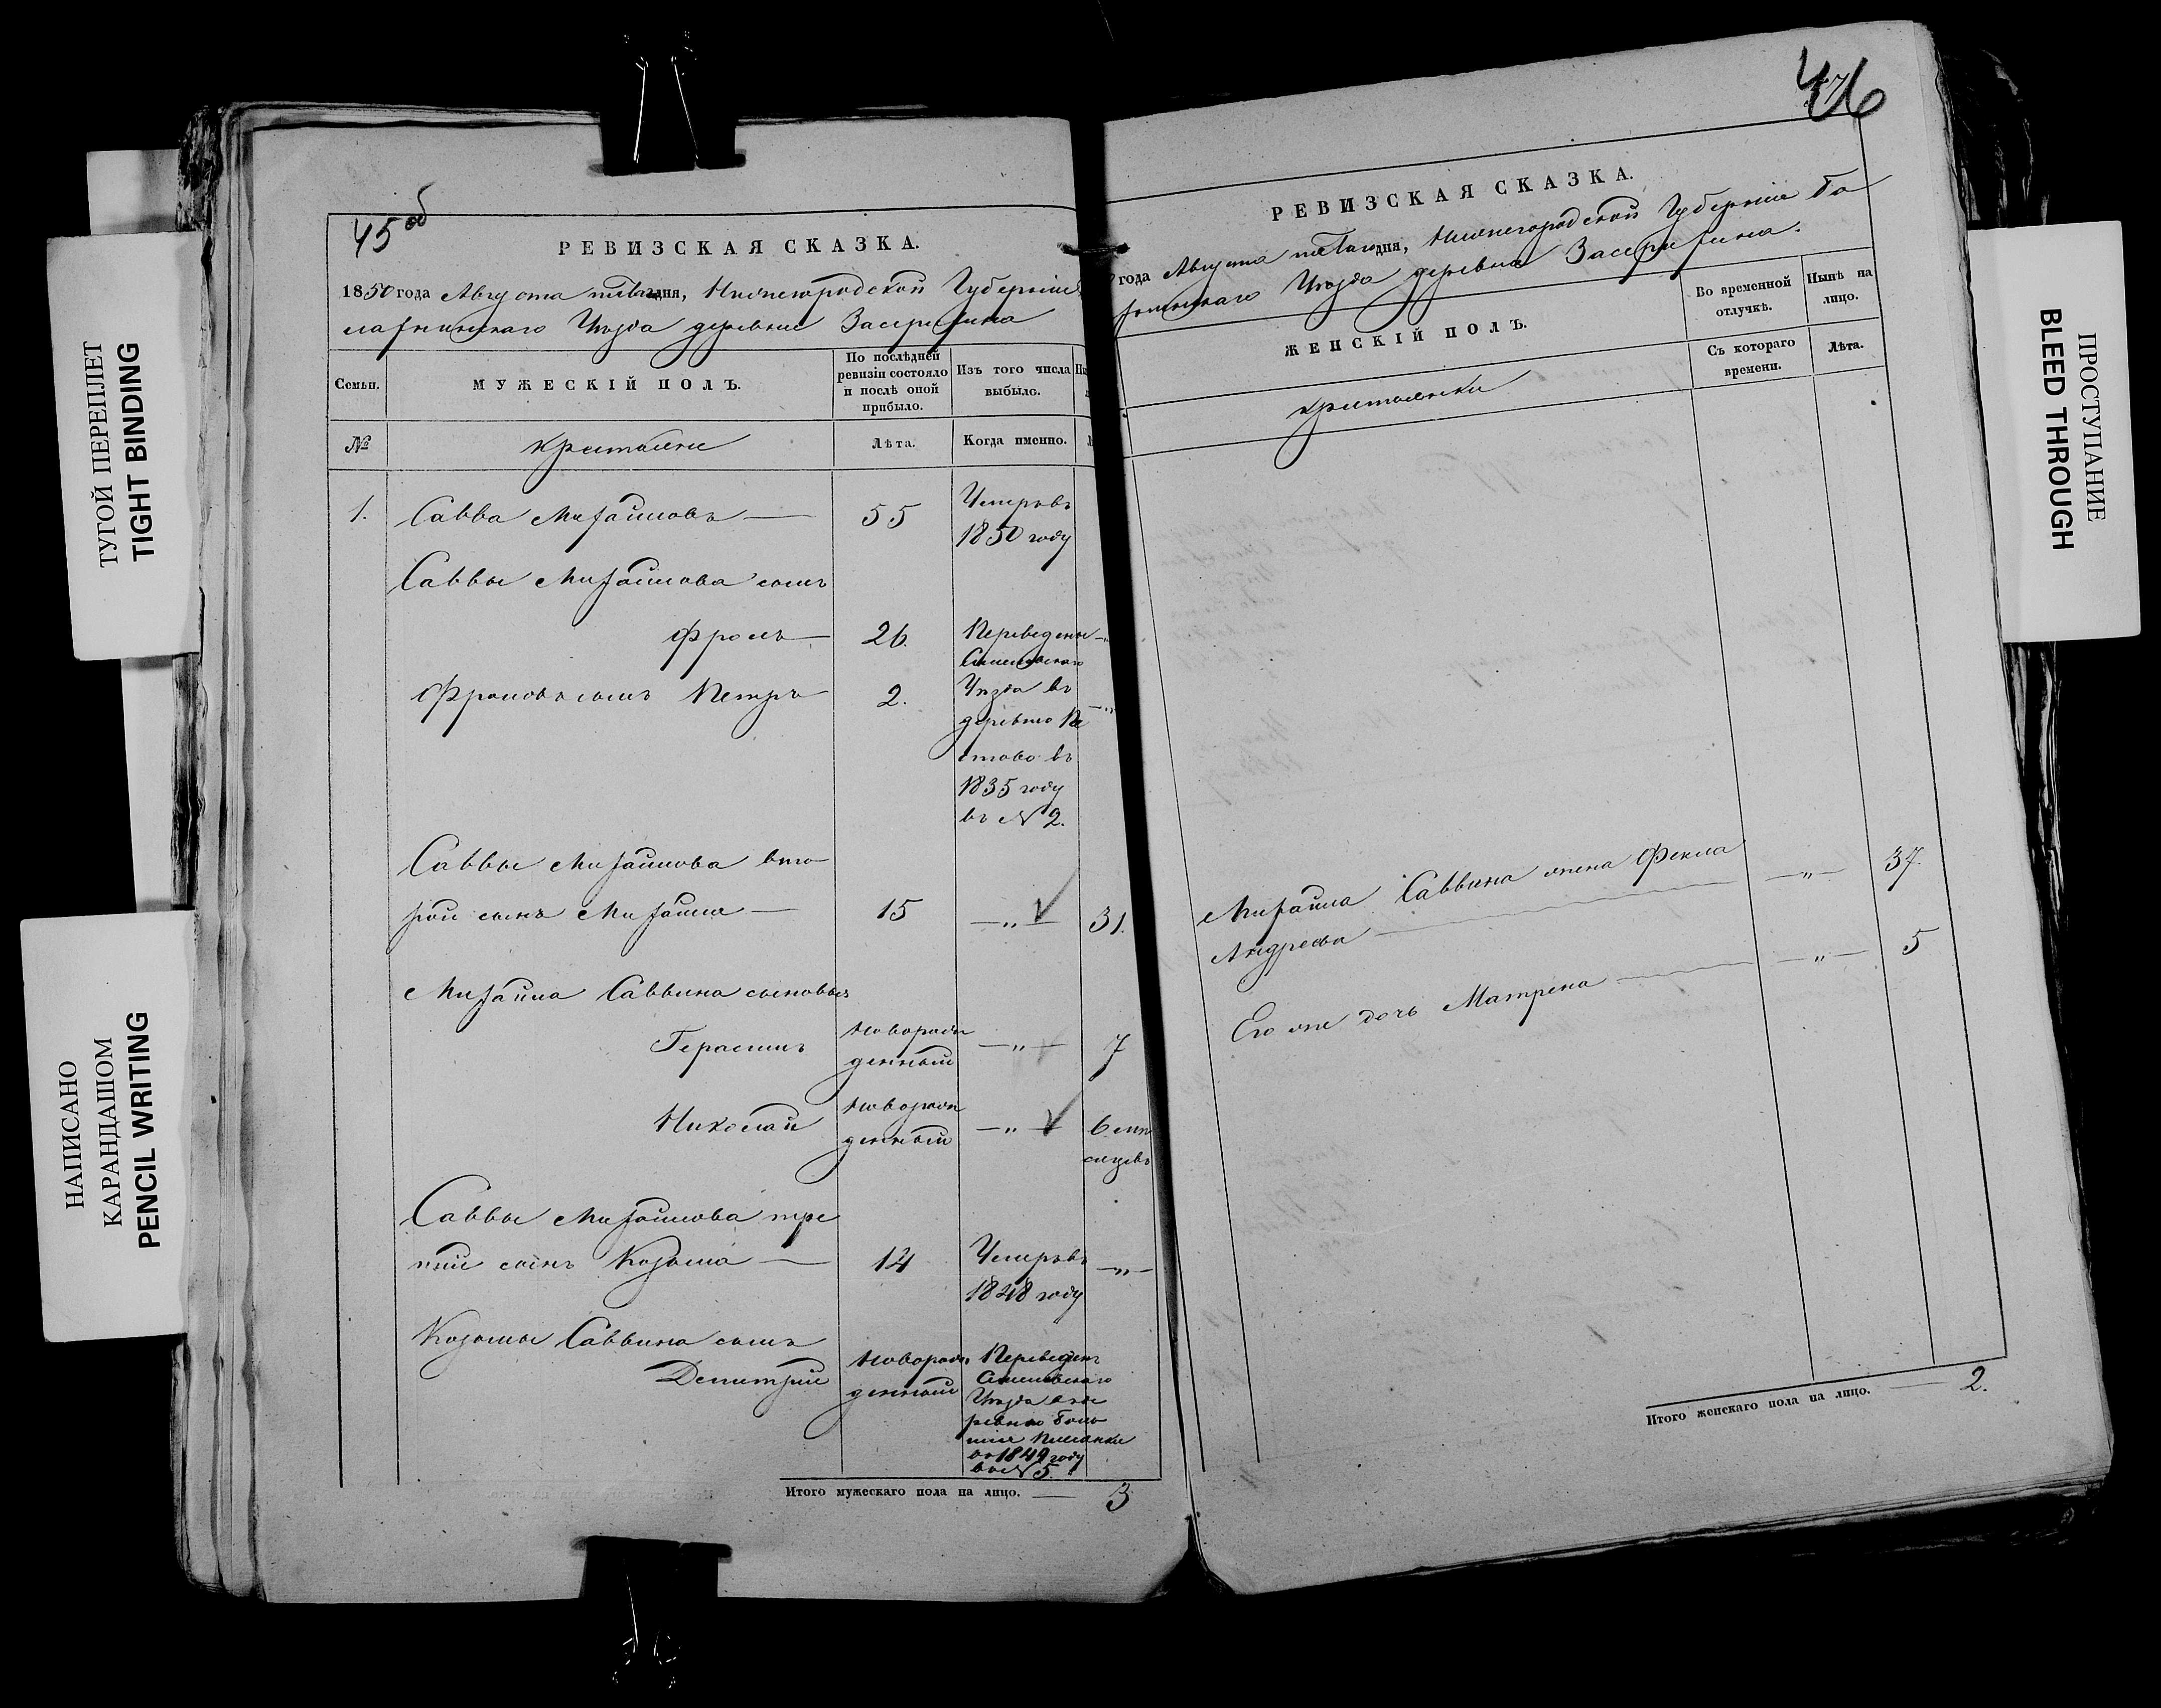 ТУГОЙ ПЕРЕПЛЕТ
TIGHT BINDING
НАПИСАНО
КАРАНДАШОМ
PENCIL WRITING
45 об
РЕВИЗСКАЯ СКАЗКА.
1850 года Августа дня, Нижегородской Губерніи
Уѣзда деревни
Семьи.
МУЖЕСКІЙ ПОЛЪ.
По послѣдней
ревизіи состояло
и послѣ оной
прибыло.
Изъ того числа
выбыло.
№
крестьяне
Лѣта.
Когда именно.
1.
Савва Михайловъ
55
Умеръ въ
1850 году
Саввы Михайлова сынъ
Фролъ
26.
Переведены
Семеновскаго
Фроловъ сынъ Петръ
2.
Уѣзда въ
деревню Пе
стово въ
1835 году
въ № 2.
Саввы Михайлова вто
рой сынъ Михайла
15
31.
Михайла Саввина сыновья
Герасимъ
новорож
денный
7
Николай
новорож
денный
6 мѣ
сяцевъ
Саввы Михайлова тре
тій сынъ Козьма
14
Умеръ въ
1848 году
Козьмы Саввина сынъ
Дмитрій
новорож
денный
Переведенъ
Семеновскаго
Уѣзда въ де
ревню Боль
шія
въ 1849 году
въ № 5.
Итого мужескаго пола на лицо. 3
46
РЕВИЗСКАЯ СКАЗКА.
года Августа дня, Нижегородской Губерніи Ба
Уѣзда деревни
ЖЕНСКІЙ ПОЛЪ.
Во временной
отлучкѣ.
Нынѣ на
лицо.
крестьянки
Съ котораго
времени.
Лѣта.
Михайла Саввина жена Фекла
37.
Андреева
Его же дочь Матрена
5
Итого женскаго пола на лицо. 2.
ПРОСТУПАНИЕ
BLEED THROUGH